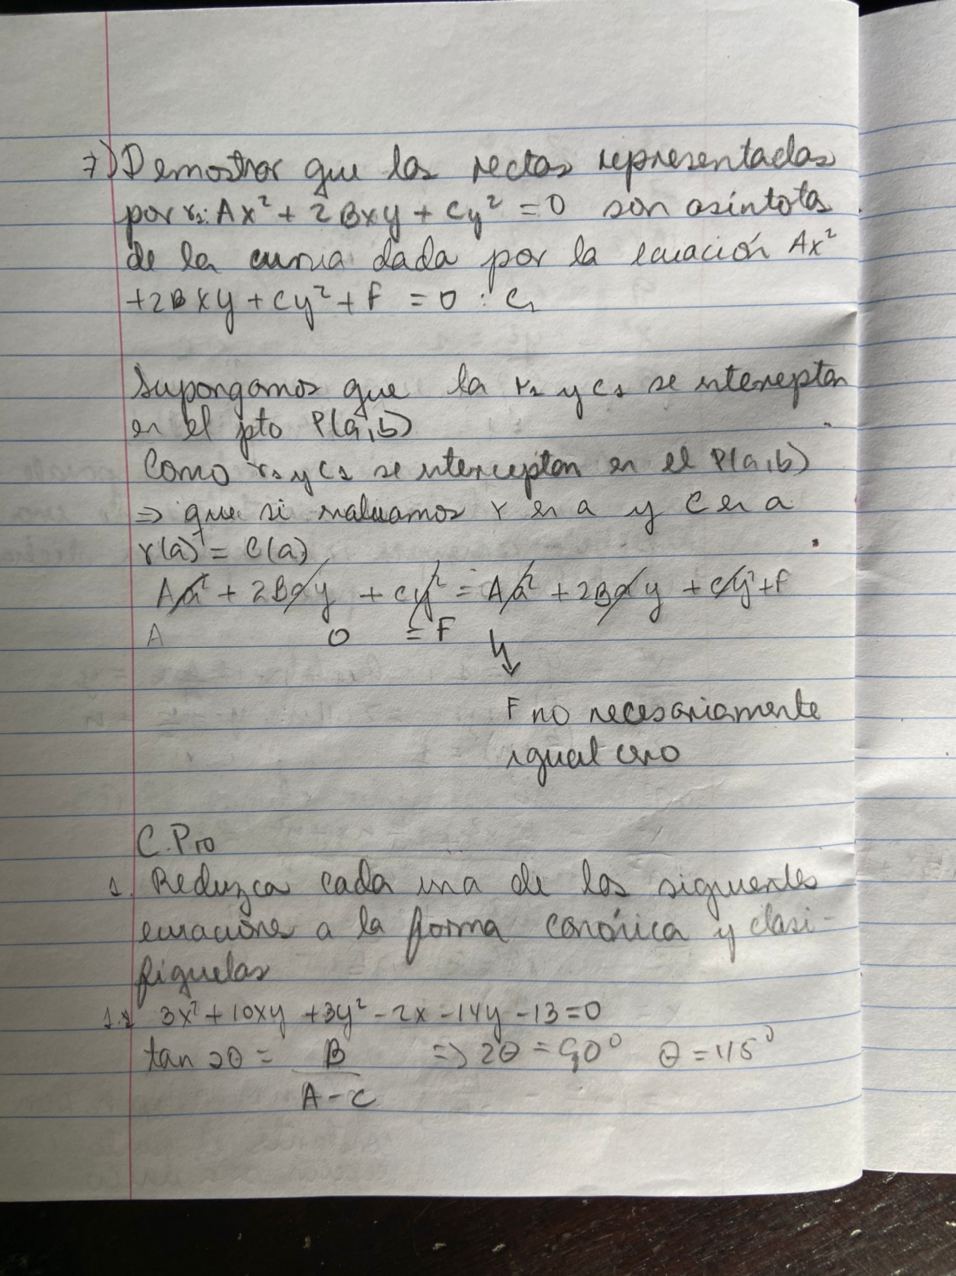 7) Demostrar que las rectas representadas
por r₁: Ax² + 2Bxy + Cy² = 0 son asíntotas
de la curva dada por la ecuación Ax²
+2Bxy + Cy² + F = 0 : C₁
Supongamos que la r₁ y C₁ se interceptan
en el pto P(a,b)
Como r₁ y C₁ se interceptan en el P(a,b)
⇒ que si evaluamos r en a y C en a
r(a) = C(a)
Aa² + 2Bay + Cy² = Aa² + 2Bay + Cy² + F
A 0 = F
F no necesariamente
igual cero
C. Pro
1. Reduzca cada una de las siguientes
ecuaciones a la forma canónica y clasi-
fíquelas
1.1 3x² + 10xy + 3y² - 2x - 14y - 13 = 0
tan 2θ = B ⇒ 2θ = 90° θ = 45°
A - C